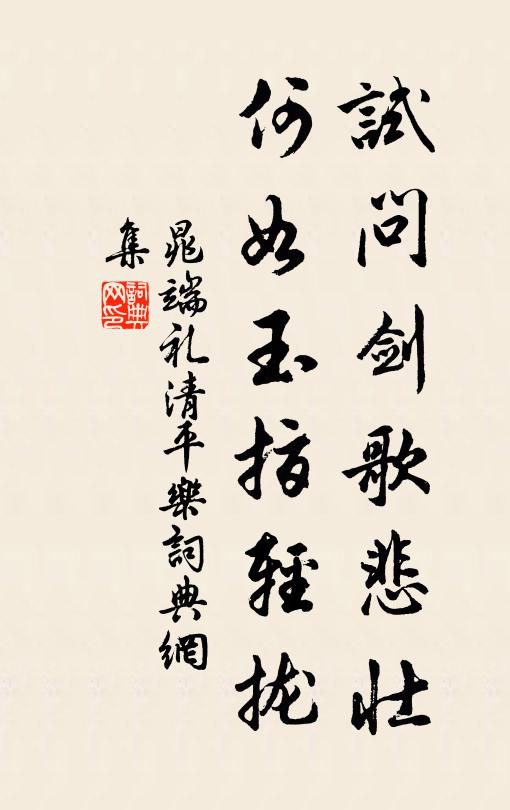 試問劍歌悲壯
何如玉指輕拢
晁端礼清平樂詞典網
集
詞典網印